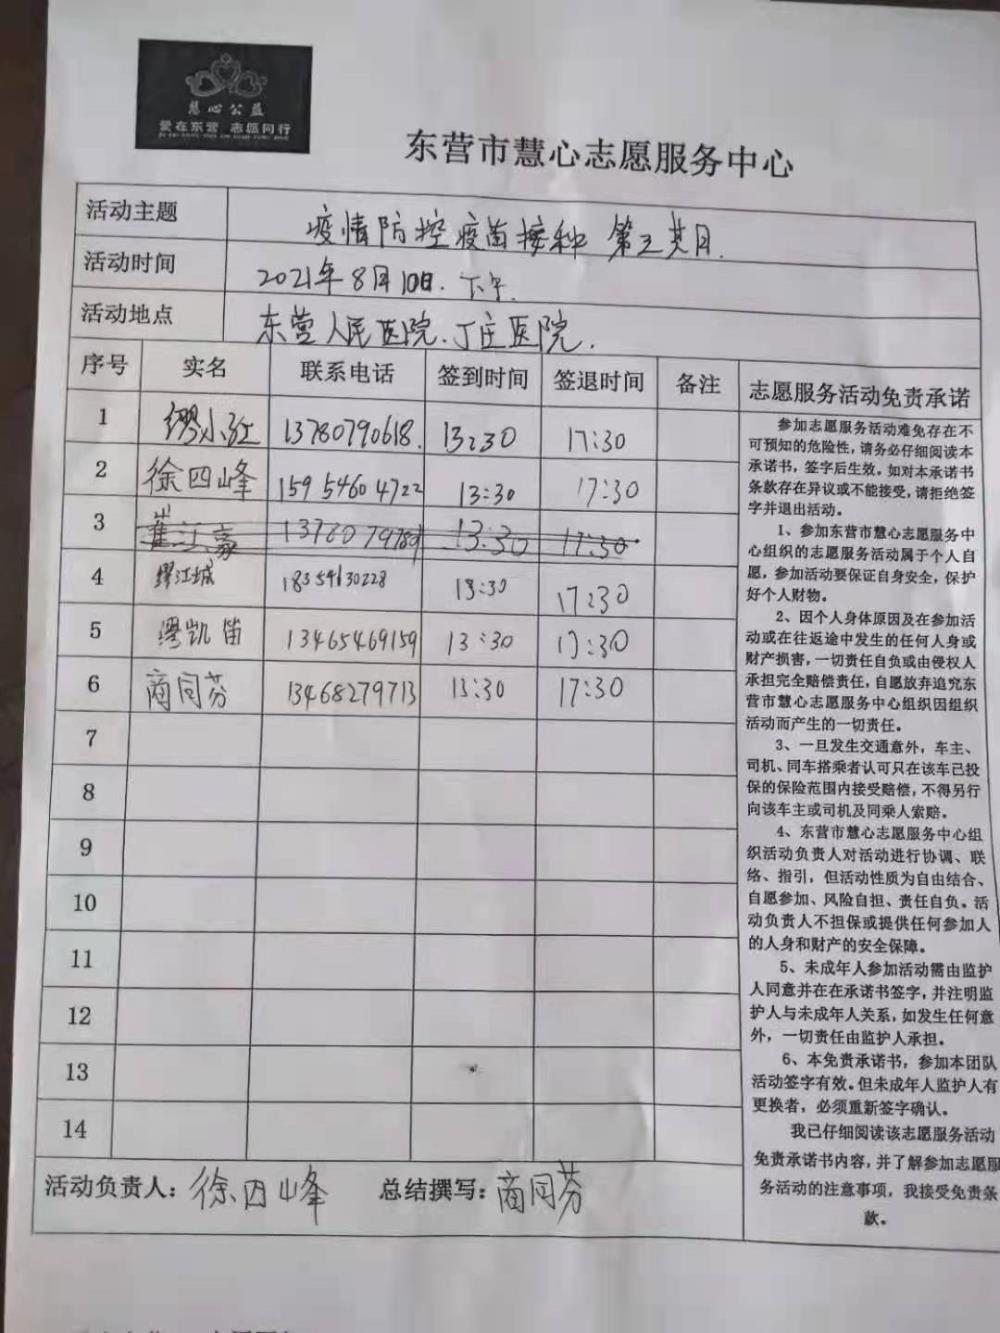 慧心公益
爱在东营 志愿同行
东营市慧心志愿服务中心
活动主题 疫情防控疫苗接种 第三类目.
活动时间 2021年8月10日.下午.
活动地点 东营人民医院.丁庄医院.
序号 实名 联系电话 签到时间 签退时间 备注 志愿服务活动免责承诺
1 缪小红 13780790618. 13:30 17:30
2 徐四峰 159 5460 4722 13:30 17:30
3 崔江豪 13:30 17:30
4 缪江城 18354630228 13:30 17:30
5 缪凯笛 13465469159 13:30 17:30
6 商同芬 13468279713 13:30 17:30
7
8
9
10
11
12
13
14
参加志愿服务活动难免存在不
可预知的危险性,请务必仔细阅读本
承诺书,签字后生效。如对本承诺书
条款存在异议或不能接受,请拒绝签
字并退出活动。
1、参加东营市慧心志愿服务中
心组织的志愿服务活动属于个人自
愿,参加活动要保证自身安全,保护
好个人财物。
2、因个人身体原因及在参加活
动或在往返途中发生的任何人身或
财产损害,一切责任自负或由侵权人
承担完全赔偿责任,自愿放弃追究东
营市慧心志愿服务中心组织因组织
活动而产生的一切责任。
3、一旦发生交通意外,车主、
司机、同车搭乘者认可只在该车已投
保的保险范围内接受赔偿,不得另行
向该车主或司机及同乘人索赔。
4、东营市慧心志愿服务中心组
织活动负责人对活动进行协调、联
络、指引,但活动性质为自由结合、
自愿参加、风险自担、责任自负。活
动负责人不担保或提供任何参加人
的人身和财产的安全保障。
5、未成年人参加活动需由监护
人同意并在在承诺书签字,并注明监
护人与未成年人关系,如发生任何意
外,一切责任由监护人承担。
6、本免责承诺书,参加本团队
活动签字有效。但未成年人监护人有
更换者,必须重新签字确认。
我已仔细阅读该志愿服务活动
免责承诺书内容,并了解参加志愿服
务活动的注意事项,我接受免责条
款。
活动负责人:徐四峰 总结撰写:商同芬